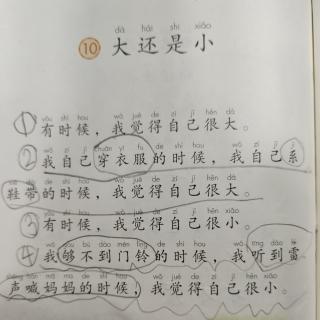 dà hái shì xiǎo
10 大还是小
yǒu shí hou wǒ jué de zì jǐ hěn dà
① 有时候，我觉得自己很大。
wǒ zì jǐ chuān yī fu de shí hou wǒ zì jǐ jì
② 我自己穿衣服的时候，我自己系
xié dài de shí hou wǒ jué de zì jǐ hěn dà
鞋带的时候，我觉得自己很大。
yǒu shí hou wǒ jué de zì jǐ hěn xiǎo
③ 有时候，我觉得自己很小。
wǒ gòu bú dào mén líng de shí hou wǒ tīng dào léi
④ 我够不到门铃的时候，我听到雷
shēng hǎn mā ma de shí hou wǒ jué de zì jǐ hěn xiǎo
声喊妈妈的时候，我觉得自己很小。